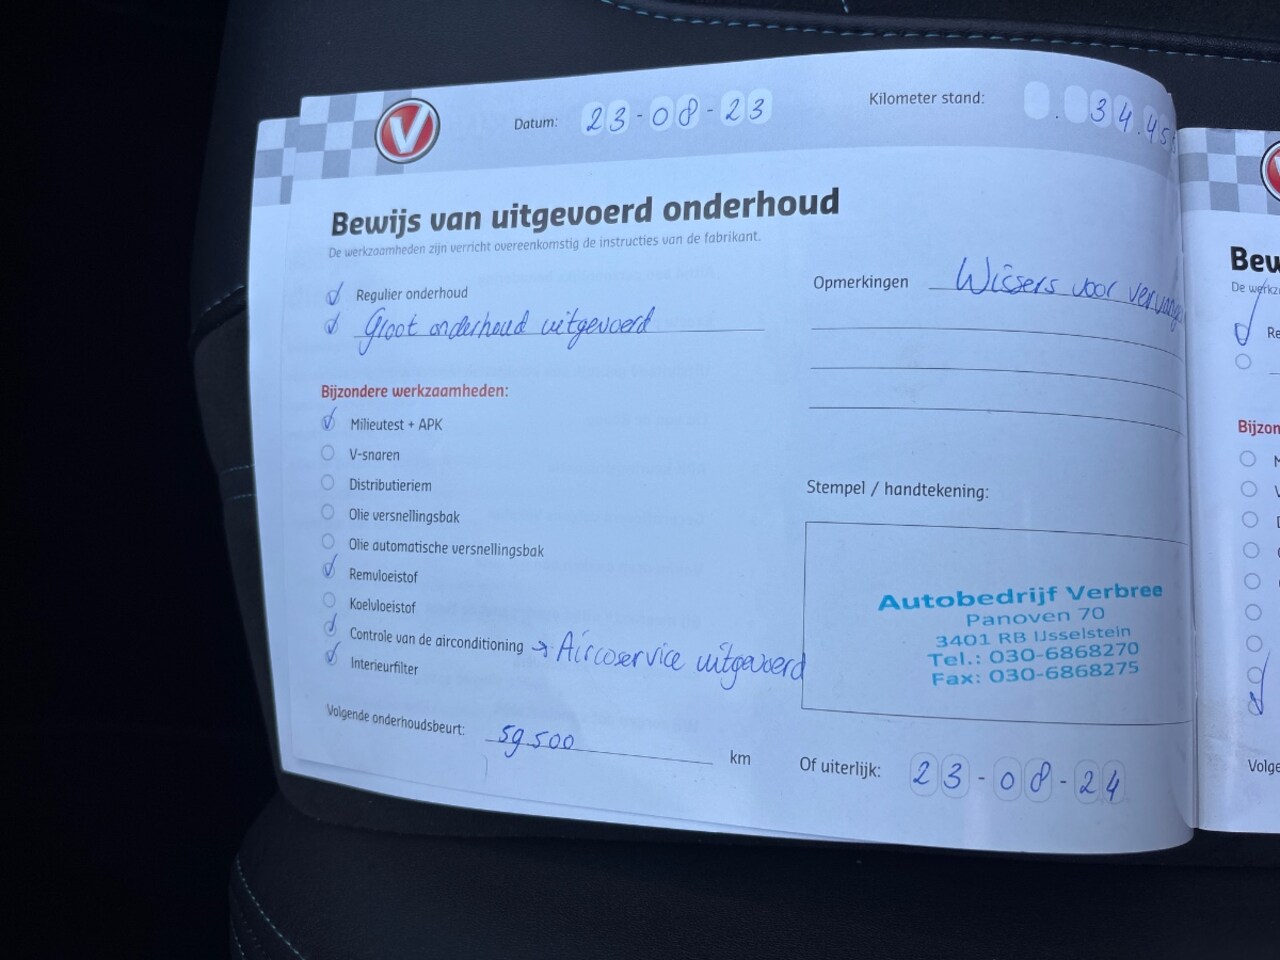 V
Datum: 23-08-23
Kilometer stand: . 34.45
Bewijs van uitgevoerd onderhoud
De werkzaamheden zijn verricht overeenkomstig de instructies van de fabrikant.
Regulier onderhoud
Groot onderhoud uitgevoerd
Opmerkingen Wissers voor
Bijzondere werkzaamheden:
Milieutest + APK
V-snaren
Distributieriem
Olie versnellingsbak
Olie automatische versnellingsbak
Remvloeistof
Koelvloeistof
Controle van de airconditioning → Aircoservice uitgevoerd
Interieurfilter
Stempel / handtekening:
Autobedrijf Verbree
Panoven 70
3401 RB IJsselstein
Tel.: 030-6868270
Fax: 030-6868275
Volgende onderhoudsbeurt: 59500 km
Of uiterlijk: 23-08-24
Bew
De werkz
Re
Bijzon
Volge